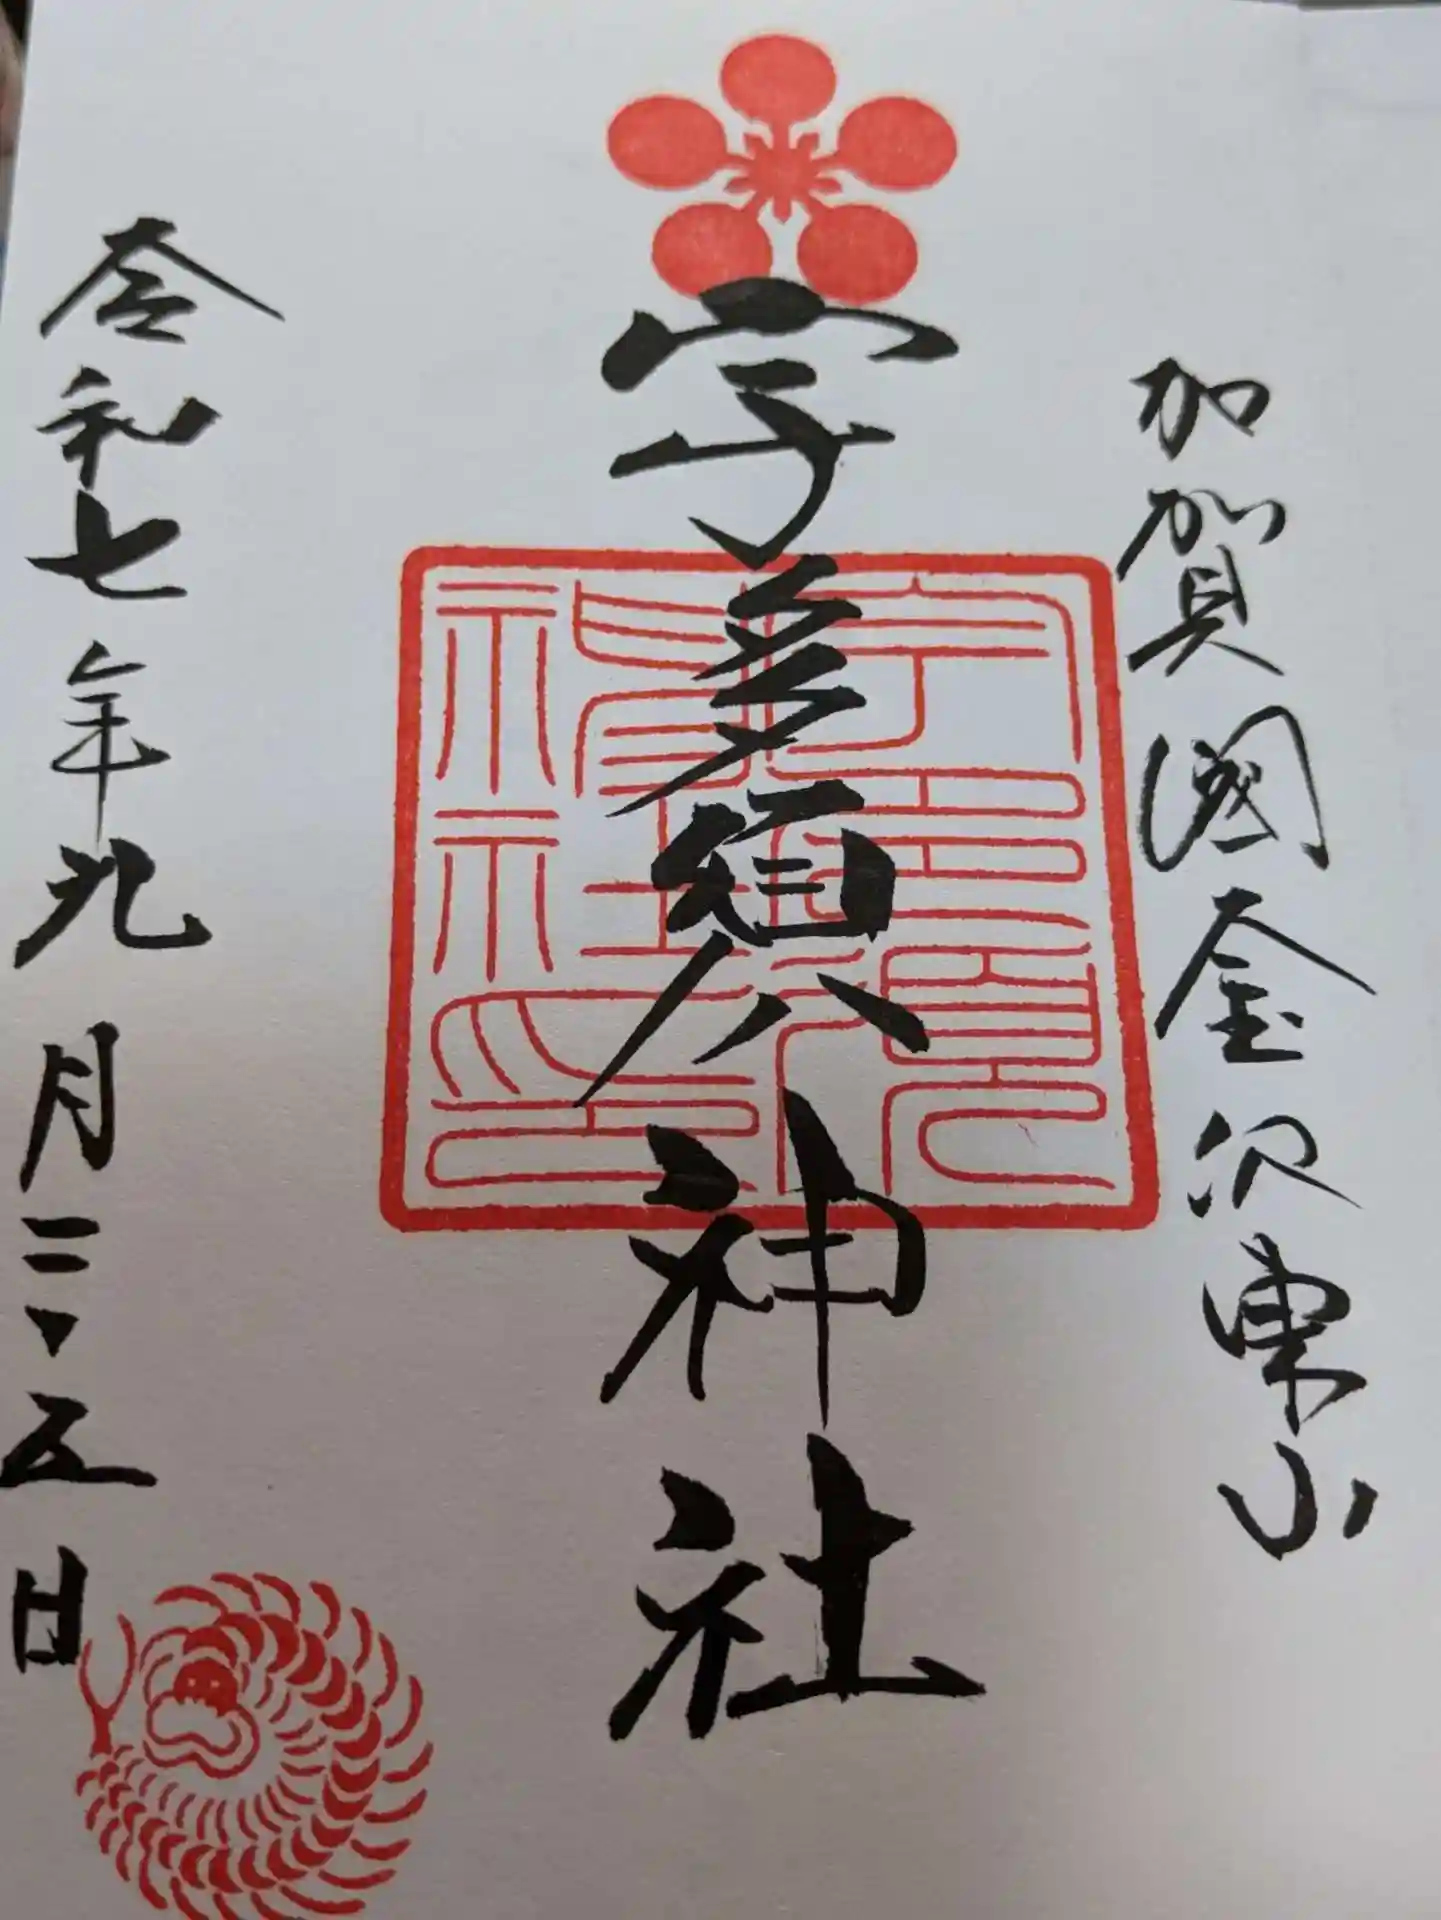 加賀國金沢東山
宇多須神社
令和七年九月二、五日
宇多須
神社印